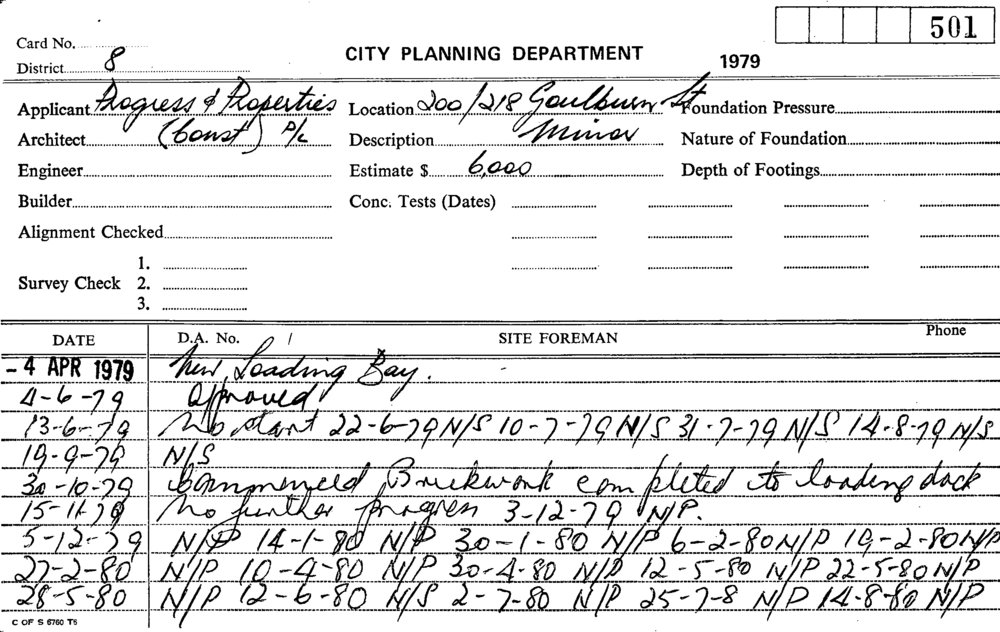 501
Card No.
CITY PLANNING DEPARTMENT 1979
District 8
Applicant Progress & Properties Location 200/218 Goulburn St Foundation Pressure
Architect (Const) P/L Description Minor Nature of Foundation
Engineer Estimate $ 6,000 Depth of Footings
Builder Conc. Tests (Dates)
Alignment Checked
1.
Survey Check 2.
3.
DATE D.A. No. SITE FOREMAN Phone
- 4 APR 1979 New Loading Bay.
4-6-79 Approved
13-6-79 No start 22-6-79 N/S 10-7-79 N/S 31-7-79 N/S 14-8-79 N/S
19-9-79 N/S
30-10-79 Commenced Brickwork completed to loading dock
15-11-79 No further progress 3-12-79 N/P.
5-12-79 N/P 14-1-80 N/P 30-1-80 N/P 6-2-80 N/P 19-2-80 N/P
27-2-80 N/P 10-4-80 N/P 30-4-80 N/P 12-5-80 N/P 22-5-80 N/P
28-5-80 N/P 12-6-80 N/S 2-7-80 N/P 25-7-8 N/P 14-8-80 N/P
C OF S 6760 T5